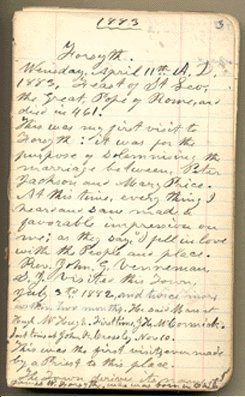 1883
3
Forsyth.
Wensday, April 11th A. D.
1883, Feast of St Leo,
the Great, Pope of Rome, and
died in 461.
This was my first visit to
Forsyth: it was for the
purpose of solemnising the
marriage between, Peter
Jackson and Mary Price.
At this time, every thing I
heard and saw made a
favorable impression on
me; as they say, I fell in love
with the People and place.
Rev. John. G. Venneman,
D.D. visited this Town,
July 3rd 1882, and twice more
within two months. He said Mass at
First time, Jno. McCormick.
last time at John Nov 10.
This was the first visit ever made
by a Priest to this place.